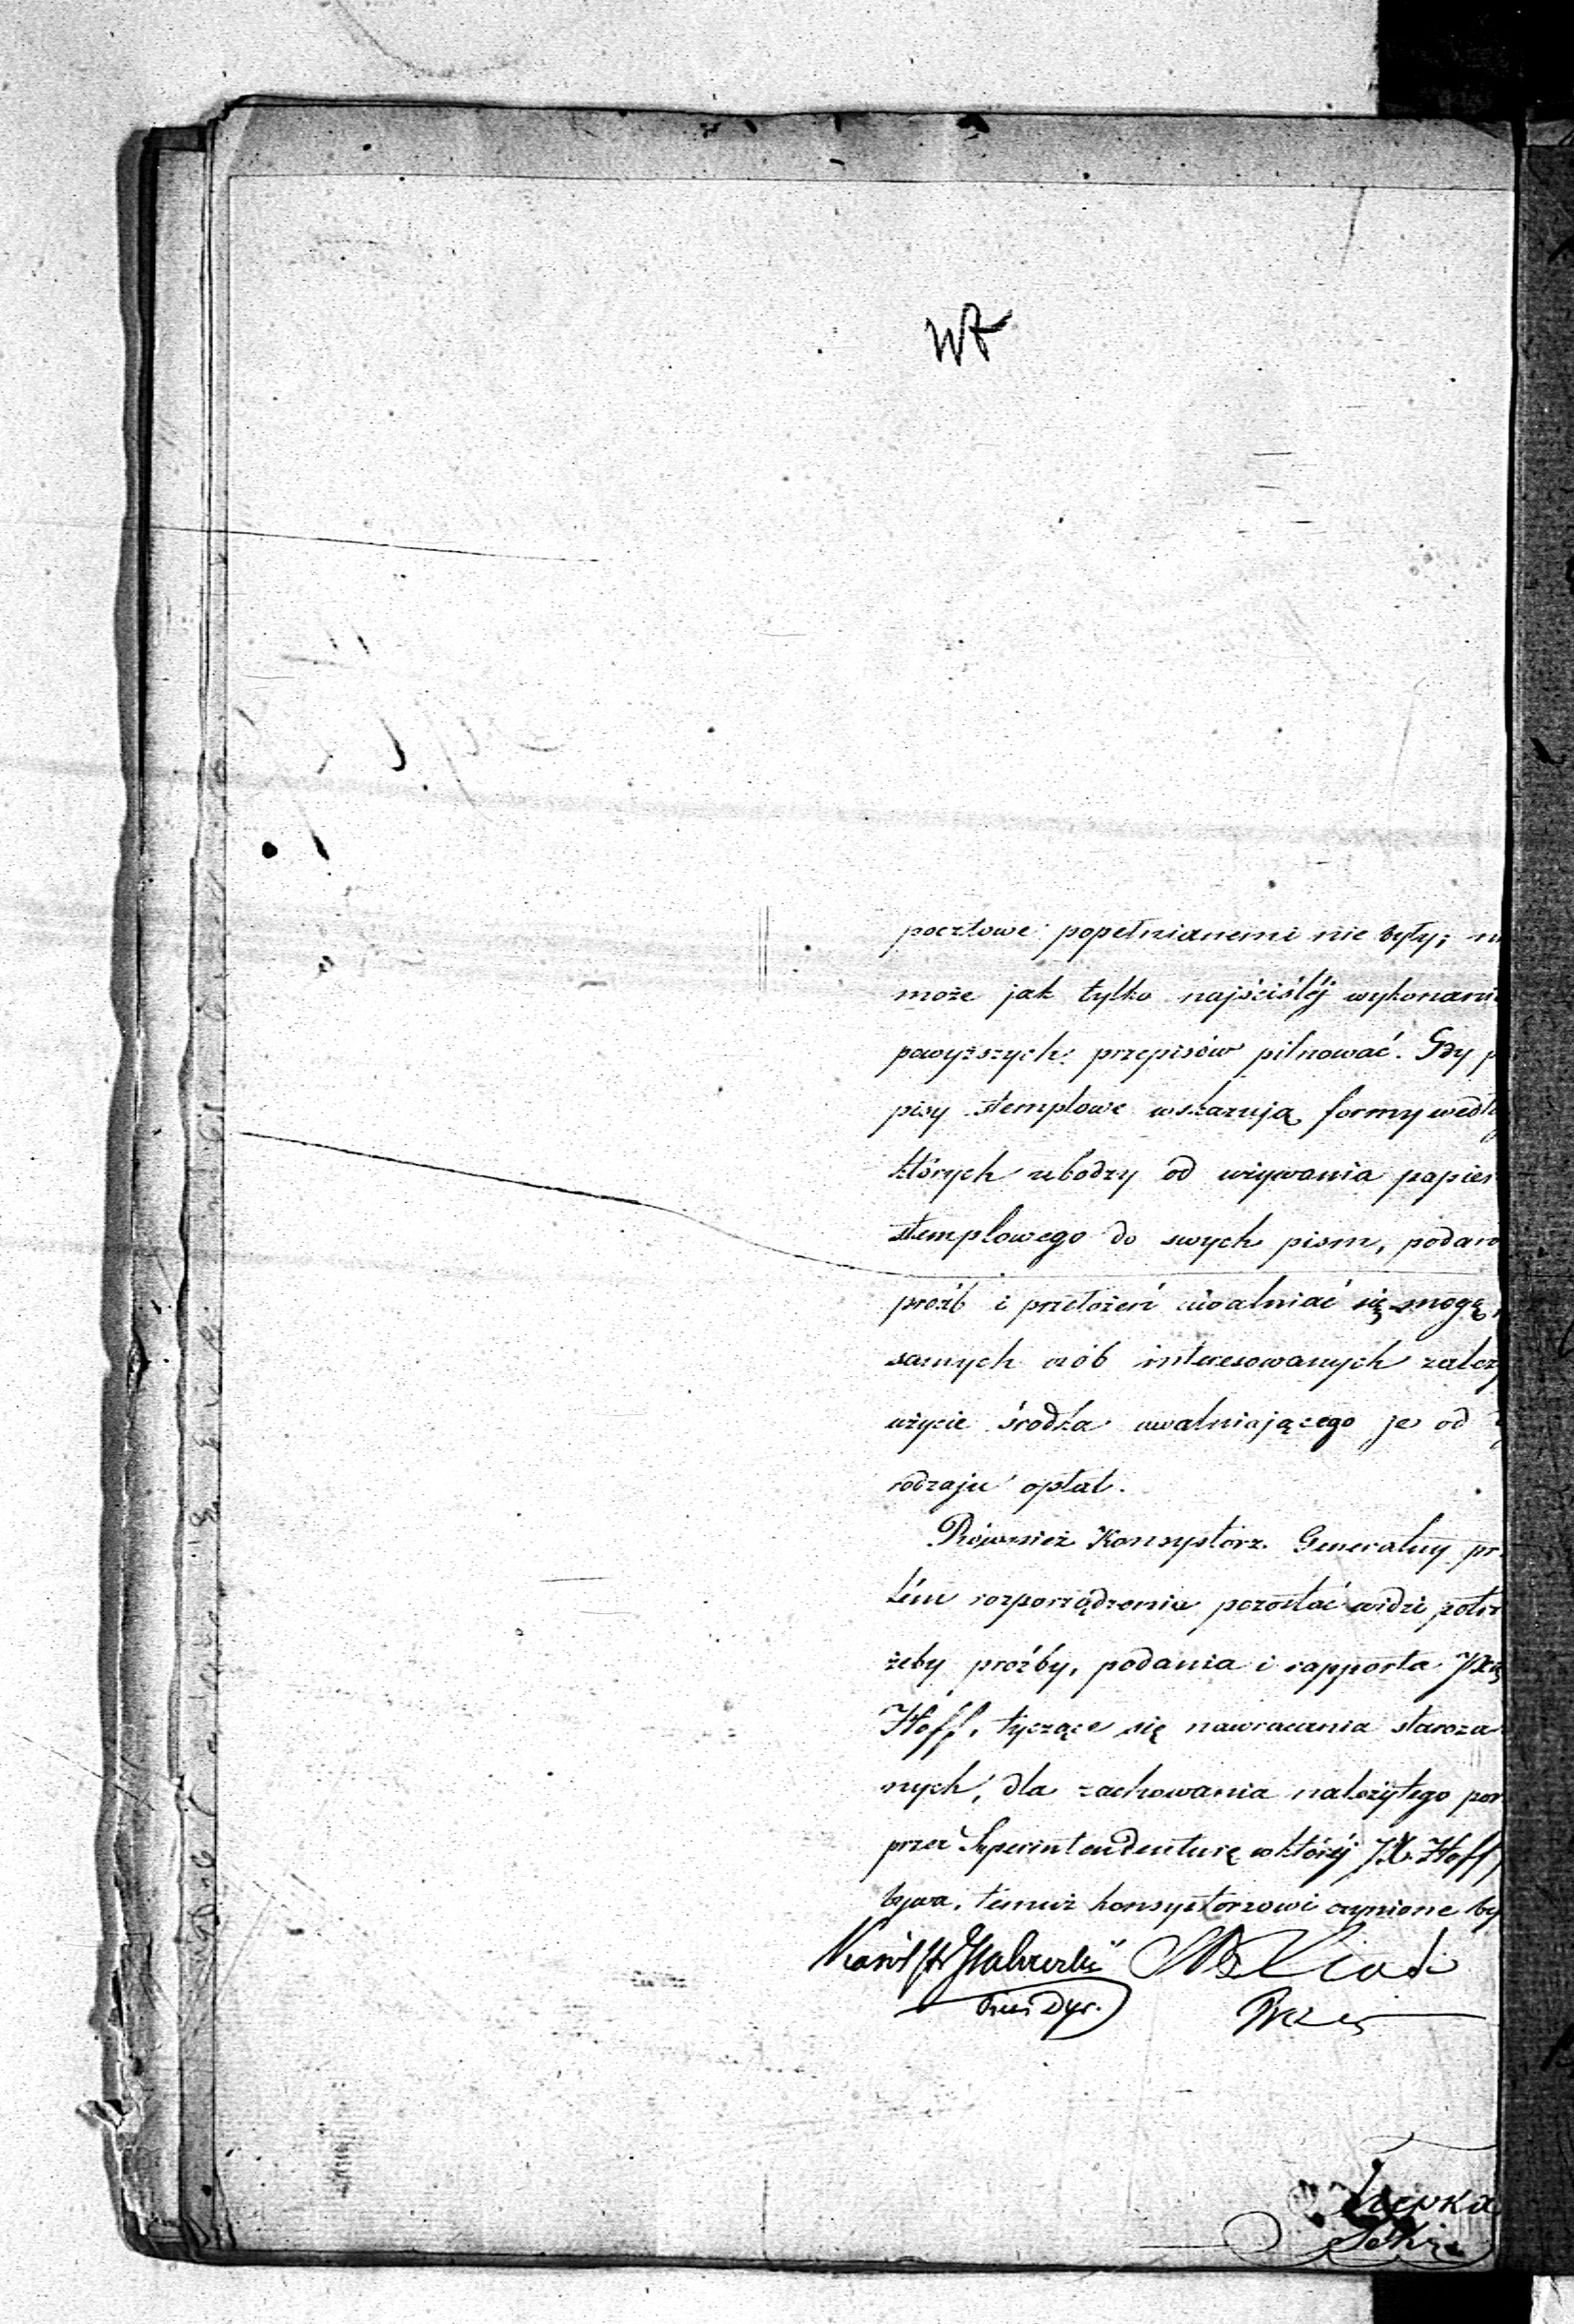 pocztowe popełnianemi nie były;
może jak tylko najściśléj wykonani
powyższych przepisów pilnować. Gdy
pisy stemplowe wskazują formy wedłu
których ubodzy od używania papier
stemplowego do swych pism, podań
proźb i przełożeń uwalniać się mogą,
samych osób interesowanych zależ
użycie środka uwalniającego je od
rodzaju opłat.
Również Konsystorz Generalny
tém rozporządzenia pozostać widzi potrz
żeby proźby, podania i rapporta
Hoff, tyczące się nawracania staroza
nych, dla zachowania należytego por
przez Superintendenturę w któréj JX. Hoff
bywa, temuż konsystorzowi czynione by
Prezes